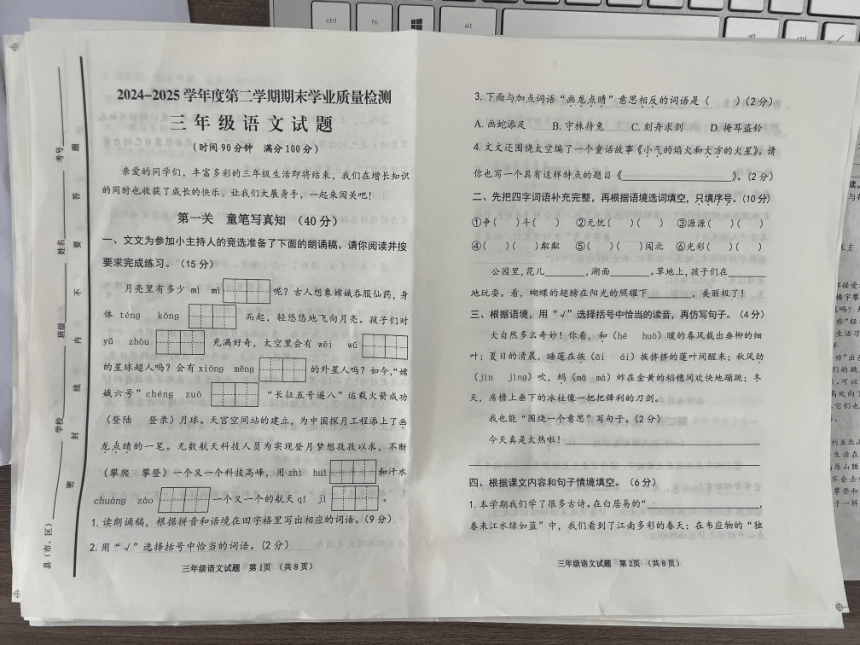 ctrl fn alt alt
县（市、区）________ 学校________ 班级________ 姓名________ 考号________
密 封 线 内 不 要 答 题
2024-2025 学年度第二学期期末学业质量检测
三年级语文试题
（时间 90 分钟 满分 100 分）
亲爱的同学们，丰富多彩的三年级生活即将结束，我们在增长知识
的同时也收获了成长的快乐。让我们大展身手，一起来闯关吧！
第一关 童笔写真知 （40 分）
一、文文为参加小主持人的竞选准备了下面的朗诵稿。请你阅读并按
要求完成练习。（15 分）
月亮里有多少 mì mì 呢？古人想象嫦娥吞服仙药，身
体 téng kōng 而起，轻悠悠地飞向月亮。孩子们对
yǔ zhòu 充满好奇，太空里会有 wēi wǔ
的星球超人吗？会有 xiōng měng 的外星人吗？如今，“嫦
娥六号”chéng zuò “长征五号遥八”运载火箭成功
（登陆 登录）月球。天宫空间站的建立，为中国探月工程添上了画
龙点睛的一笔。无数航天科技人员为实现登月梦想孜孜以求，不断
（攀爬 攀登）一个又一个科技高峰，用 zhì huì 和汗水
chuàng zào 一个又一个的航天 qí jì 。
1. 读朗诵稿，根据拼音和语境在田字格里写出相应的词语。（9 分）
2. 用“√”选择括号中恰当的词语。（2 分）
三年级语文试题 第 1页 （共 8 页）
3. 下面与加点词语“画龙点睛”意思相反的词语是（ ）（2 分）
A. 画蛇添足 B. 守株待兔 C. 刻舟求剑 D. 掩耳盗铃
4. 文文还围绕太空编了一个童话故事《小气的焰火和大方的火星》。请
你也写一个具有这样特点的题目《________》。（2 分）
二、先把四字词语补充完整，再根据语境选词填空，只填序号。（10 分）
①争（ ）斗（ ） ②无忧（ ）（ ） ③源源（ ）（ ）
④（ ）（ ）翩翩 ⑤（ ）（ ）闯北 ⑥光彩（ ）（ ）
公园里，花儿________，湖面________。草地上，孩子们在________
地玩耍。看，蝴蝶的翅膀在阳光的照耀下________，美丽极了！
三、根据语境，用“√”选择括号中恰当的读音，再仿写句子。（4 分）
大自然多么奇妙！你看，和（hé huò）暖的春风裁出垂柳的细
叶；夏日的清晨，睡莲在挨（āi ái）挨挤挤的莲叶间醒来；秋风劲
（jìn jìng）吹，蚂（mǎ mà）蚱在金黄的稻穗间欢快地蹦跳；冬
天，房檐上垂下的冰柱像一把把锋利的刀剑。
我也能“围绕一个意思”写句子。（2 分）
今天真是太热啦！________
四、根据课文内容和句子情境填空。（6 分）
1. 本学期我们学了很多古诗。在白居易的“________，
春来江水绿如蓝”中，我们看到了江南多彩的春天；在韦应物的“独
三年级语文试题 第 2页 （共 8 页）